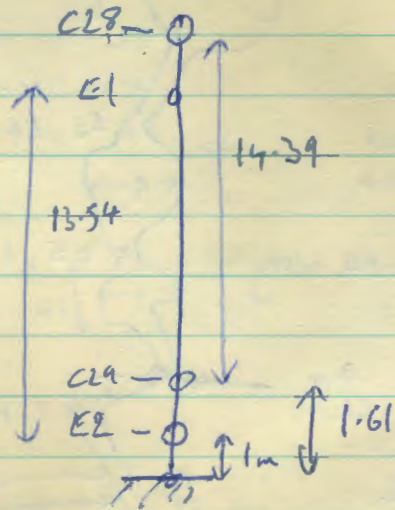 C28
E1
14.39
13.54
C29
E2
1m
1.61